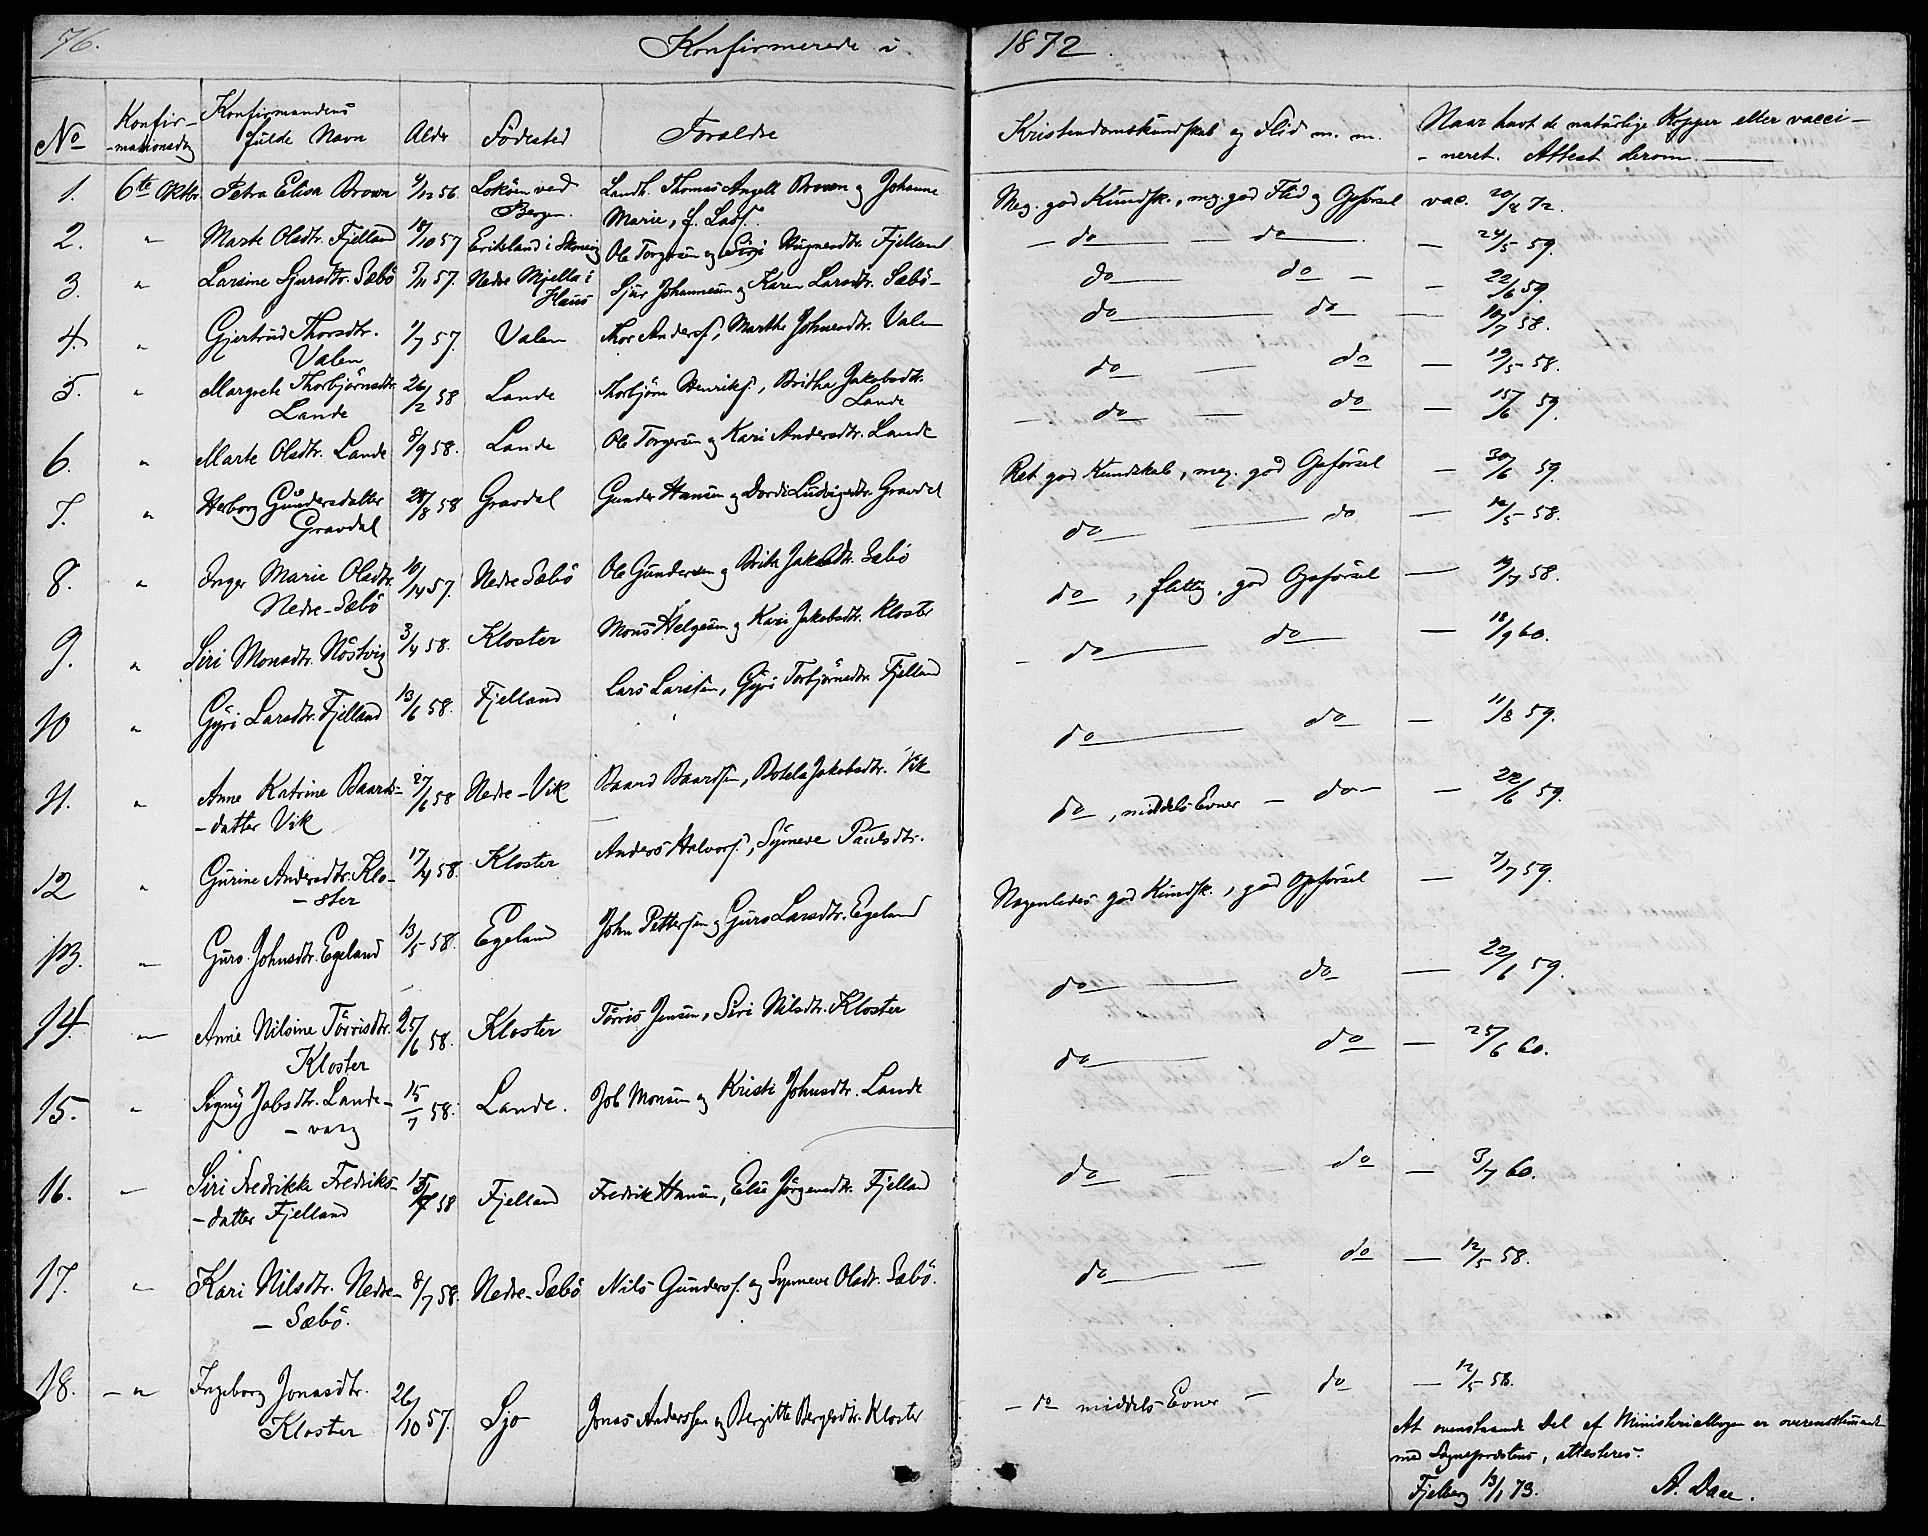 76. Konfirmerede i 1872.
No Konfir-mationsdag Konfirmandens fulde Navn Alder Födested Forældre Kristendomskundskab og Flid m. m. Naar havt de natürlige Kopper eller vacci-neret. Attest derom.
1. 6te Oktbr. Petra Elisa Brown 4/12 56 Loköen ved Bergen. Landh. Thomas Angell Brown og Johanne Marie, f. Meg. god Kundsk., meg. god Flid og Opförsel vac. 20/8 72.
2. " Marte Olsdtr. Fjelland 18/10 57 i Ole Torgersen og Siri Fjelland - do - do - 24/5 59.
3. " Larsine Sjursdtr. Sæbö 5/11 57. Nedre Mjella i Haus Sjur Johannesen og Karen Larsdtr. Sæbö - do do - 22/6 59.
4. " Gjertrud Thorsdtr. Valen 1/7 57. Valen Thor Andersf, Marthe Johnsdtr. Valen do do - 10/7 58.
5. " Margrete Thorbjörnsdtr. Lande 26/2 58 Lande Thorbjörn Henriksf., Britha Jakobsdtr. Lande do - do - 19/5 58.
6. " Marte Olsdtr. Lande 8/9 58. Lande Ole Torgersen og Kari Andersdtr. Lande - do - do - 15/6 59.
7. " Herborg Gundersdatter Gravdal 28/8 58 Gravdal Gunder Hansen og Dordi Ludvigsdtr. Gravdal Ret god Kundskab, meg. god Opförsel - 30/6 59.
8. " Inger Marie Olsdtr. Nedre-Sæbö 10/14 57. Nedre Sæbö Ole Gundersen og Brite Jakobsdtr. Sæbö do - do - 12/5 58.
9. " Siri Monsdtr. Nöstvig 3/4 58. Kloster Mons Helgesen og Kari Jakobsdtr. Kloster do, flittig, god Opförsel - 14/7 58.
10 " Gyri Larsdtr. Fjelland 13/6 58. Fjelland Lars Larssen, Gyri Torbjörnsdtr. Fjelland - do - do - 18/9 60.
11. " Anne Katrine Baards-datter Vik 27/6 58 Nedre-Vik Baard Baardsen, Botela Jakobsdtr. Vik do do - 11/8 59.
12 " Gurine Andersdtr. Klo-ster 17/4 58. Kloster Anders Halvorf., Synneve Paulsdtr. do, middels Evner - do - - 22/6 59.
13. " Guro Johnsdtr. Egeland 13/5 58. Egeland John Pettersen og Guro Larsdtr. Egeland Nogenledes god Kundsk., god Opförsel - 7/7 59.
14. " Anne Nilsine Törrisdtr. Kloster 25/6 58. Kloster Törris Jensen, Siri Nilsdtr. Kloster do - do - 22/6 59.
15. " Signy Jobsdtr. Lande-varg 15/7 58. Lande. Job Monsen og Kristi Johnsdtr. Lande do do - 25/6 60.
16. " Siri Fredrikke Fredriks-datter Fjelland 58 Fjelland Fredrik Hansen, Else Jörgensdtr. Fjelland do - do - 3/7 60.
17. " Kari Nilsdtr. Nedre-Sæbö. 8/7 58. Nedre-Sæbö Nils Gundersf. og Synneve Olsdtr. Sæbö. do - do - 12/5 58.
18. - " Ingeborg Jonasdtr. Kloster 26/10 57. Sjo Jonas Anderssen og Bergitte Bergesdtr. Kloster - do middels Evner - do - 12/5 58.
At ovenstaaende Del af Ministerialbogen er overensstemmende
med Sognepræstens, attesteres.
Fjelberg 13/1 73. A. Daae.